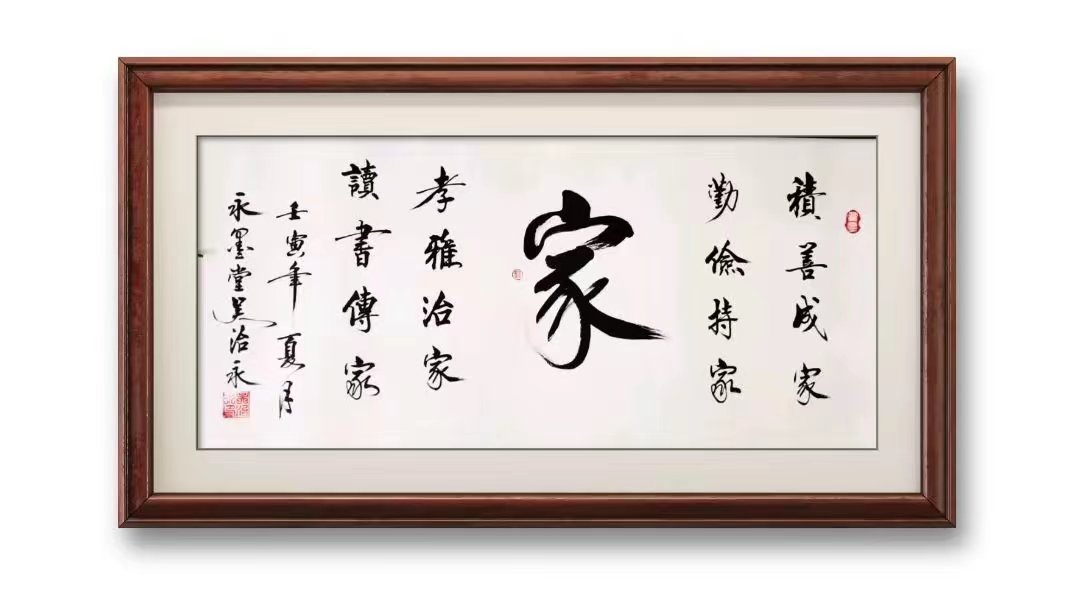 積善成家
勤儉持家
家
孝雅治家
讀書傳家
壬寅年夏月
永墨堂吴治永